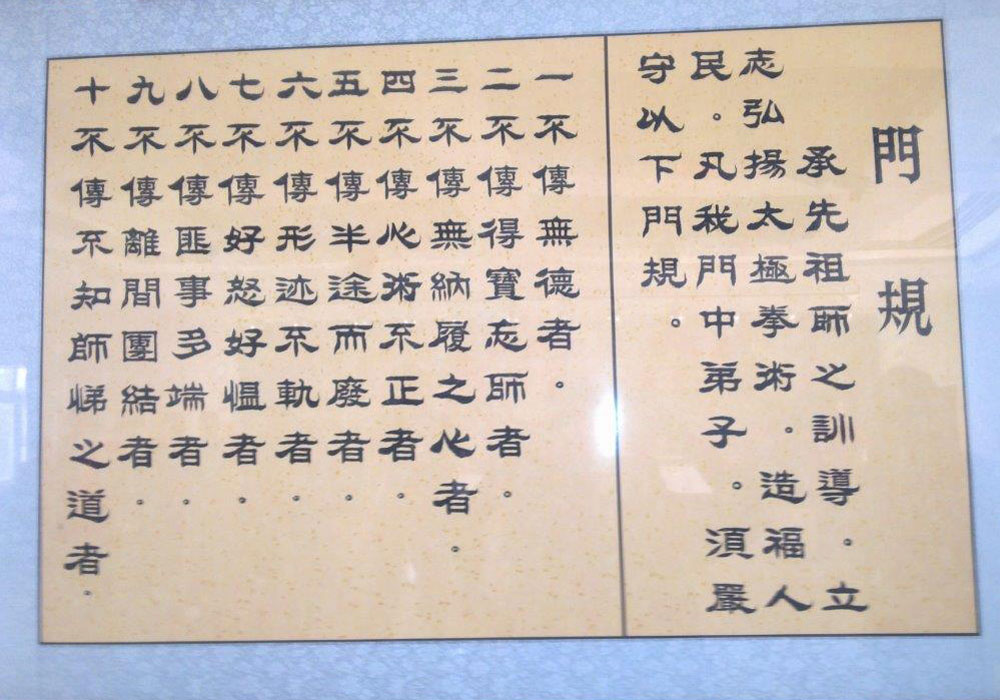 門規
承先祖師之訓導。立
志弘揚太極拳術。造福人
民。凡我門中弟子。須嚴
守以下門規。
一不傳無德者。
二不傳得寶忘師者。
三不傳無納履之心者。
四不傳心術不正者。
五不傳半途而廢者。
六不傳形迹不軌者。
七不傳好怒好慍者。
八不傳匪事多端者。
九不傳離間團結者。
十不傳不知師悌之道者。